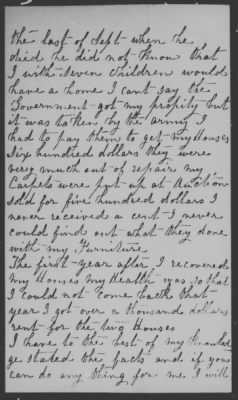 the last of Sept when he
died he did not know that
I with seven children would
have a home I cant say the
Government got my propity but
it was taken by the army I
had to pay them to get my Houses
six hundred dollars they were
very much out of repair my
Carpets were put up at Auction
sold for five hundred dollars I
never received a cent I never
could find out what they done
with my Furniture
The first year after I recovered
my Houses my Health was so that
I could not come back that
year I got over a thousand dollars
rent for the two Houses
I have to the best of my knowled
ge stated the facts and if you
can do any thing for me I will